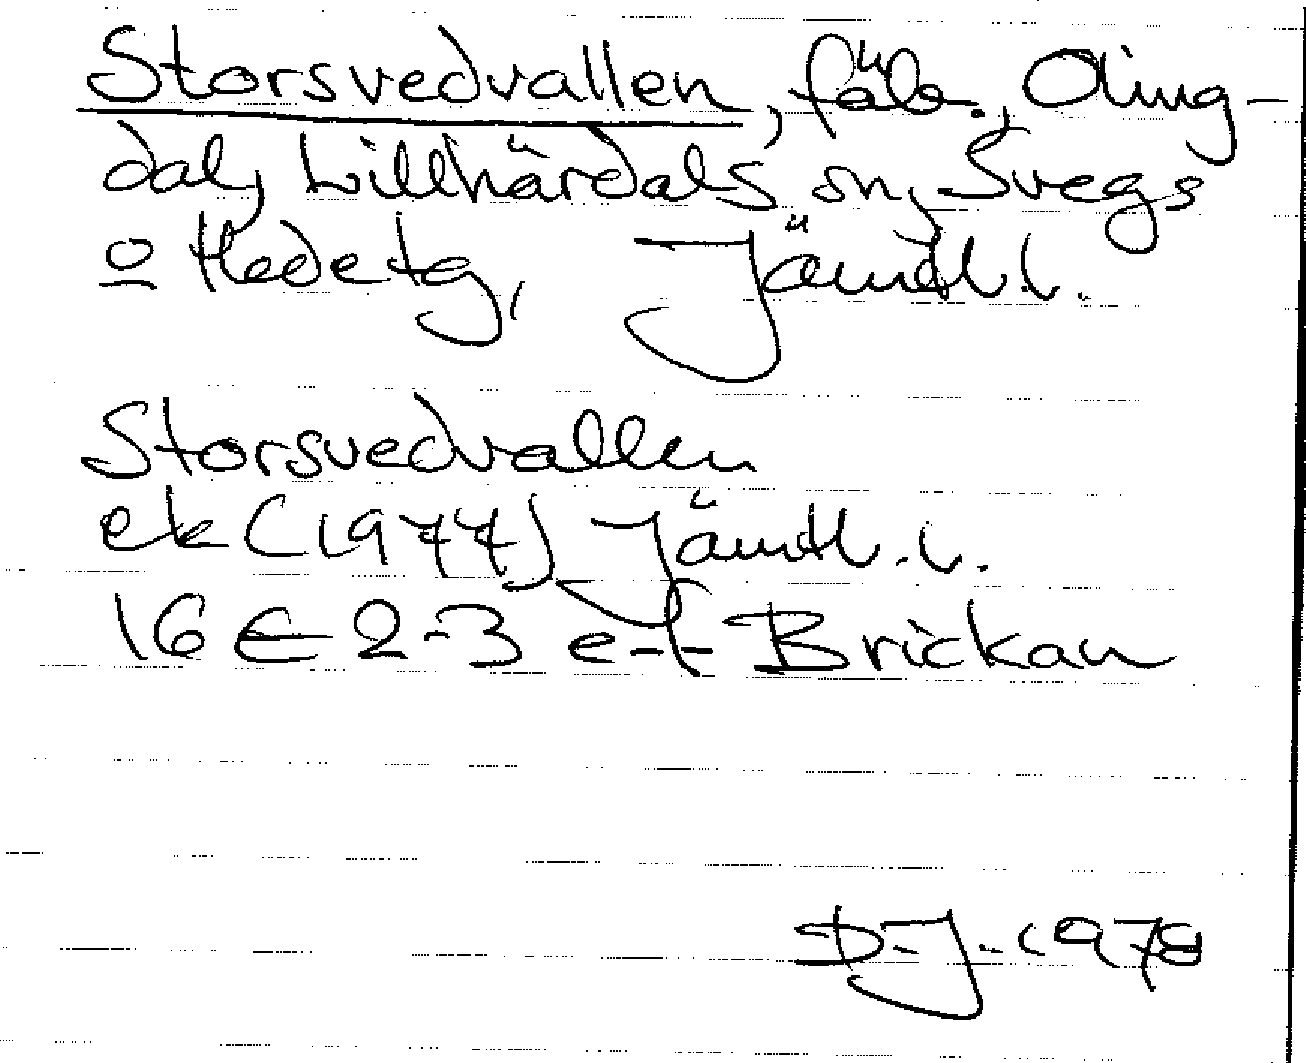 Storsvedvallen, fäb., Oling-
dal, Lillhärdals sn, Svegs
o Hede tg, Jämtl. l.
Storsvedvallen
ek (1977) Jämtl. l.
16 E 2-3 e-f Brickan
D.J. 1978